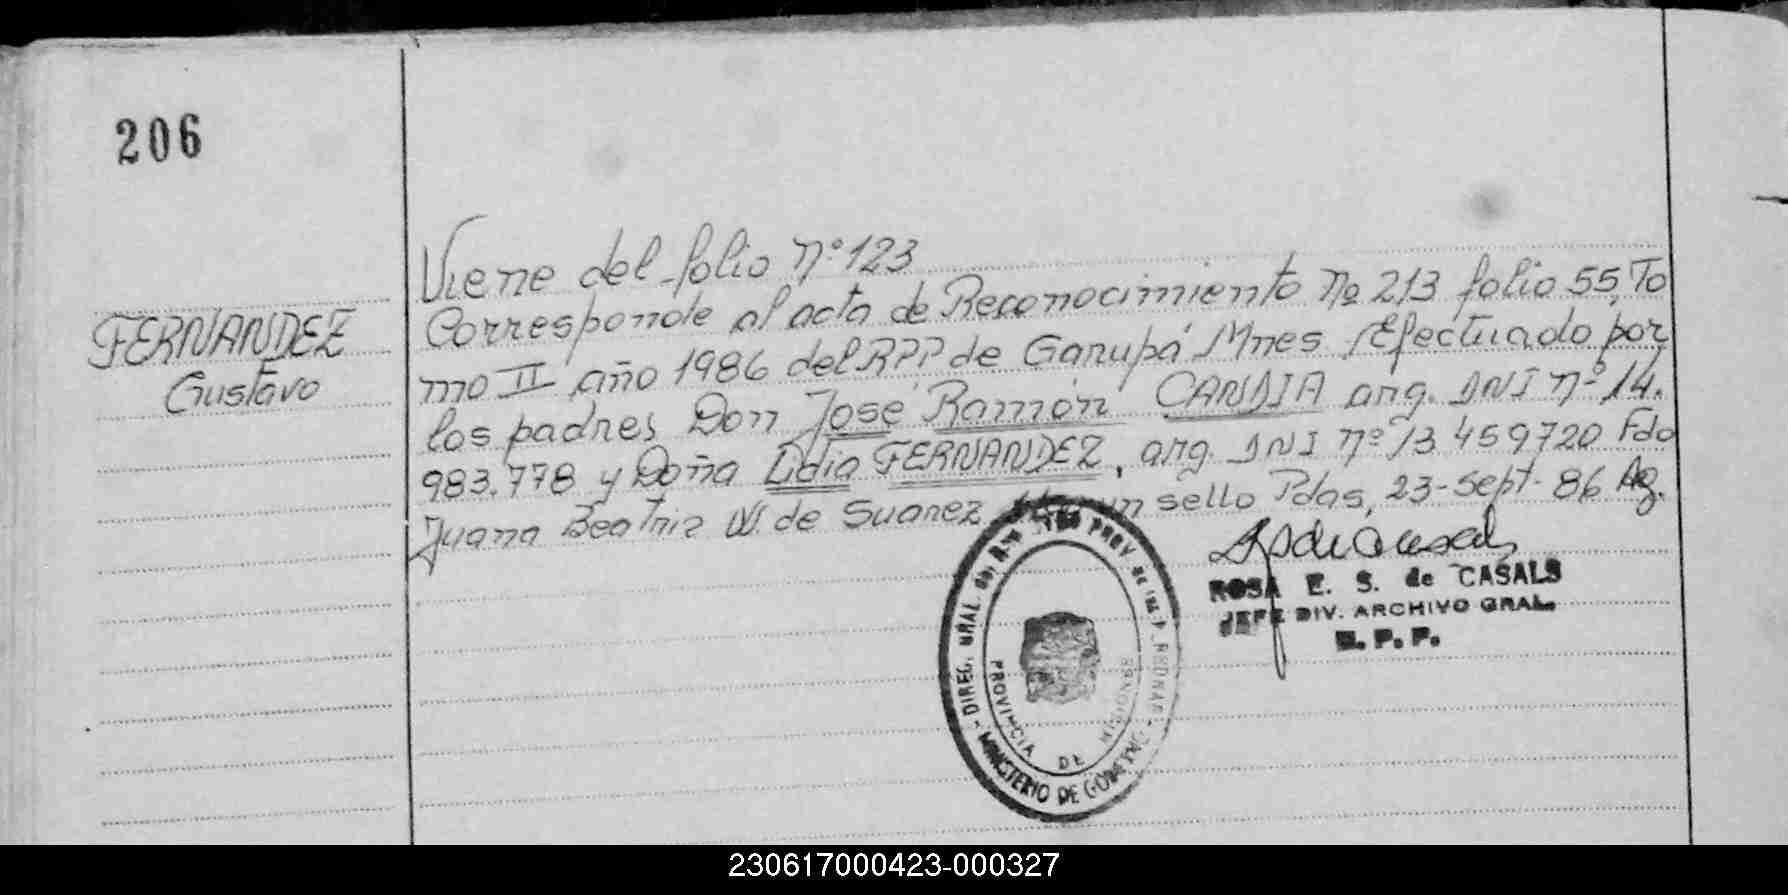 206
FERNANDEZ
Gustavo
Viene del folio Nº 123
Corresponde al acta de Reconocimiento Nº 213 folio 55, To
mo II año 1986 del RPP de Garupá Mnes, Efectuado por
los padres Don José Ramón CANDIA arg. DNI Nº 14.
983.778 y Doña Lidia FERNANDEZ, arg. DNI Nº 13459720 Fdo
Juana Beatriz W. de Suarez un sello Pdas, 23-Sept-86 Ag.
ROSA E. S. de CASALS
JEFE DIV. ARCHIVO GRAL.
R. P. P.
DIREC. GRAL. del PROV. de las
MINISTERIO DE GOBIERNO
PROVINCIA DE MISIONES
230617000423-000327